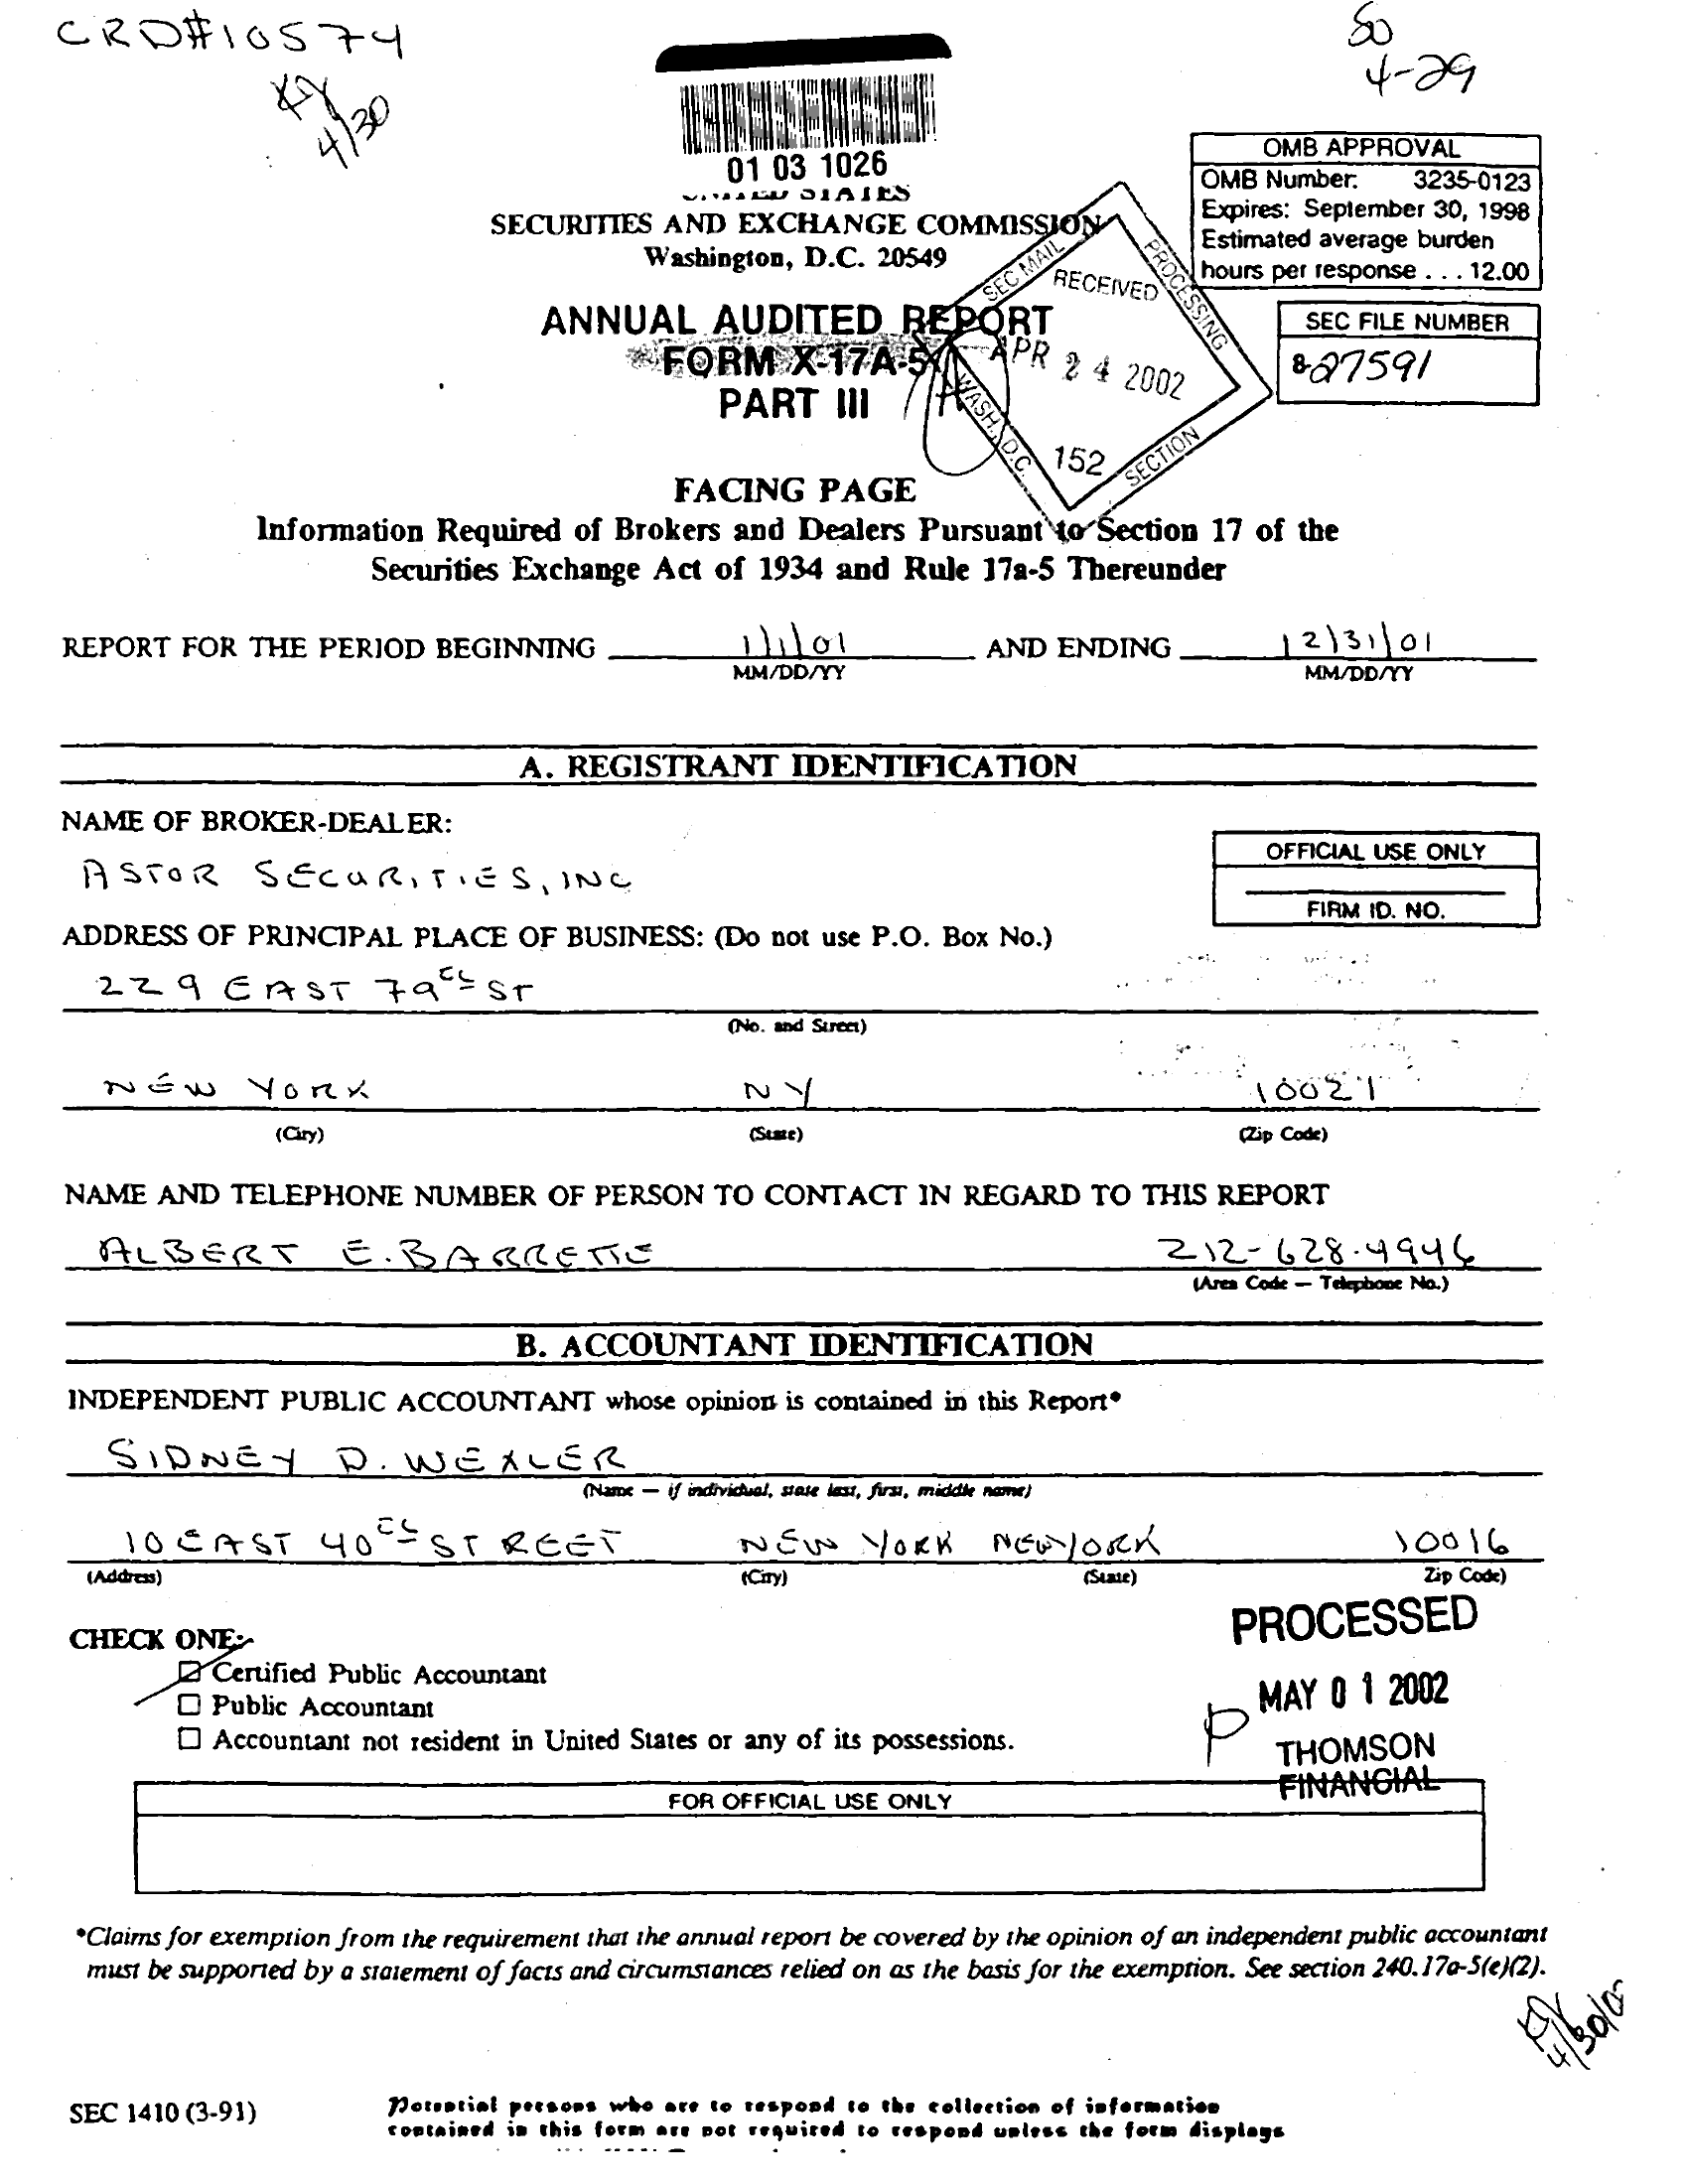 CRD#10574
80
4-29
4/30
01 03 1026
UNITED STATES
SECURITIES AND EXCHANGE COMMISSION
Washington, D.C. 20549
OMB APPROVAL
OMB Number: 3235-0123
Expires: September 30, 1998
Estimated average burden
hours per response . . . 12.00
ANNUAL AUDITED REPORT
FORM X-17A-5
PART III
SEC MAIL
RECEIVED
PROCESSING
APR 24 2002
WASH., D.C.
152
SECTION
SEC FILE NUMBER
8-27591
FACING PAGE
Information Required of Brokers and Dealers Pursuant to Section 17 of the
Securities Exchange Act of 1934 and Rule 17a-5 Thereunder
REPORT FOR THE PERIOD BEGINNING 1/1/01 AND ENDING 12/31/01
MM/DD/YY MM/DD/YY
A. REGISTRANT IDENTIFICATION
NAME OF BROKER-DEALER:
ASTOR SECURITIES, INC
OFFICIAL USE ONLY
FIRM ID. NO.
ADDRESS OF PRINCIPAL PLACE OF BUSINESS: (Do not use P.O. Box No.)
229 EAST 79 ST
(No. and Street)
NEW YORK NY 10021
(City) (State) (Zip Code)
NAME AND TELEPHONE NUMBER OF PERSON TO CONTACT IN REGARD TO THIS REPORT
ALBERT E. BARRETTE 212-628-4946
(Area Code — Telephone No.)
B. ACCOUNTANT IDENTIFICATION
INDEPENDENT PUBLIC ACCOUNTANT whose opinion is contained in this Report*
SIDNEY D. WEXLER
(Name — if individual, state last, first, middle name)
10 EAST 40 STREET NEW YORK NEW YORK 10016
(Address) (City) (State) Zip Code)
CHECK ONE:
Certified Public Accountant
Public Accountant
Accountant not resident in United States or any of its possessions.
PROCESSED
MAY 01 2002
P
THOMSON
FINANCIAL
FOR OFFICIAL USE ONLY
*Claims for exemption from the requirement that the annual report be covered by the opinion of an independent public accountant
must be supported by a statement of facts and circumstances relied on as the basis for the exemption. See section 240.17a-5(e)(2).
4/30/02
SEC 1410 (3-91)
Potential persons who are to respond to the collection of information
contained in this form are not required to respond unless the form displays